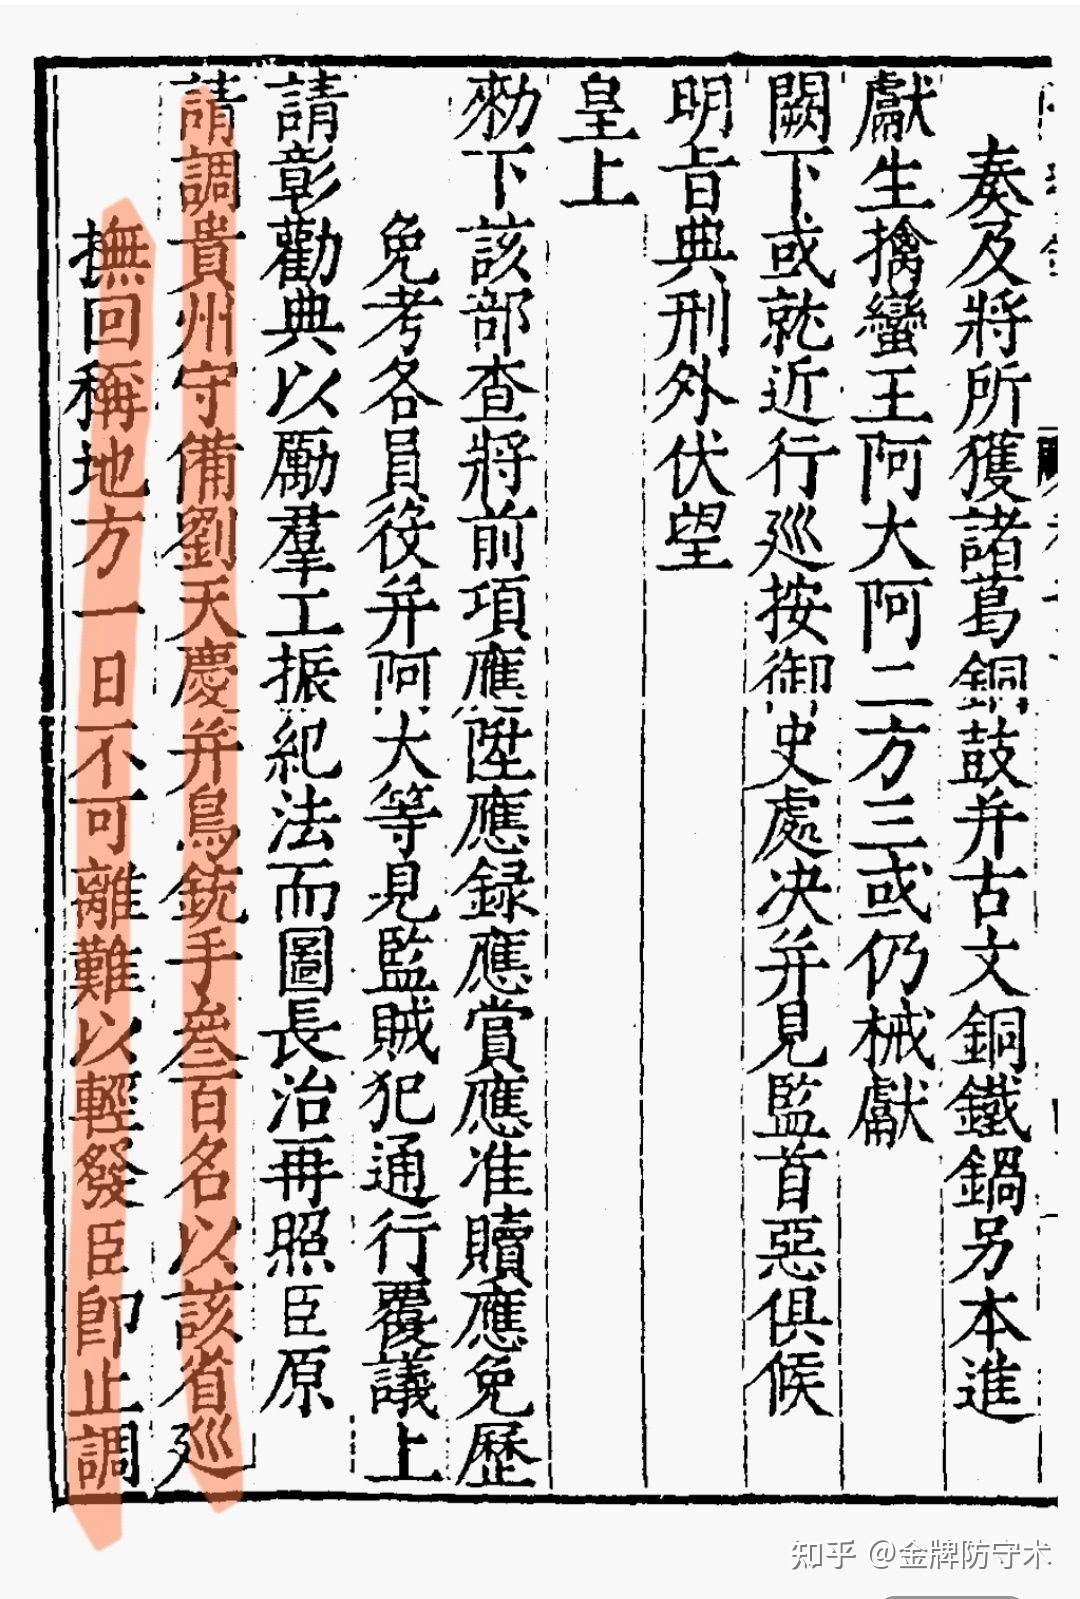 奏及將所獲諸葛銅鼓并古文銅鐵鍋另本進
獻生擒蠻王阿大阿二方三或仍械獻
闕下或就近行廵按御史處决并見監首惡俱候
明旨典刑外伏望
皇上
勑下該部查將前項應陞應録應賞應准贖應免歷
免考各員役并阿大等見監賊犯通行覆議上
請彰勸典以勵羣工振紀法而圖長治再照臣原
請調貴州守備劉天慶并鳥銃手叄百名以該省廵
撫回稱地方一日不可離難以輕發臣即止調
知乎 @金牌防守术